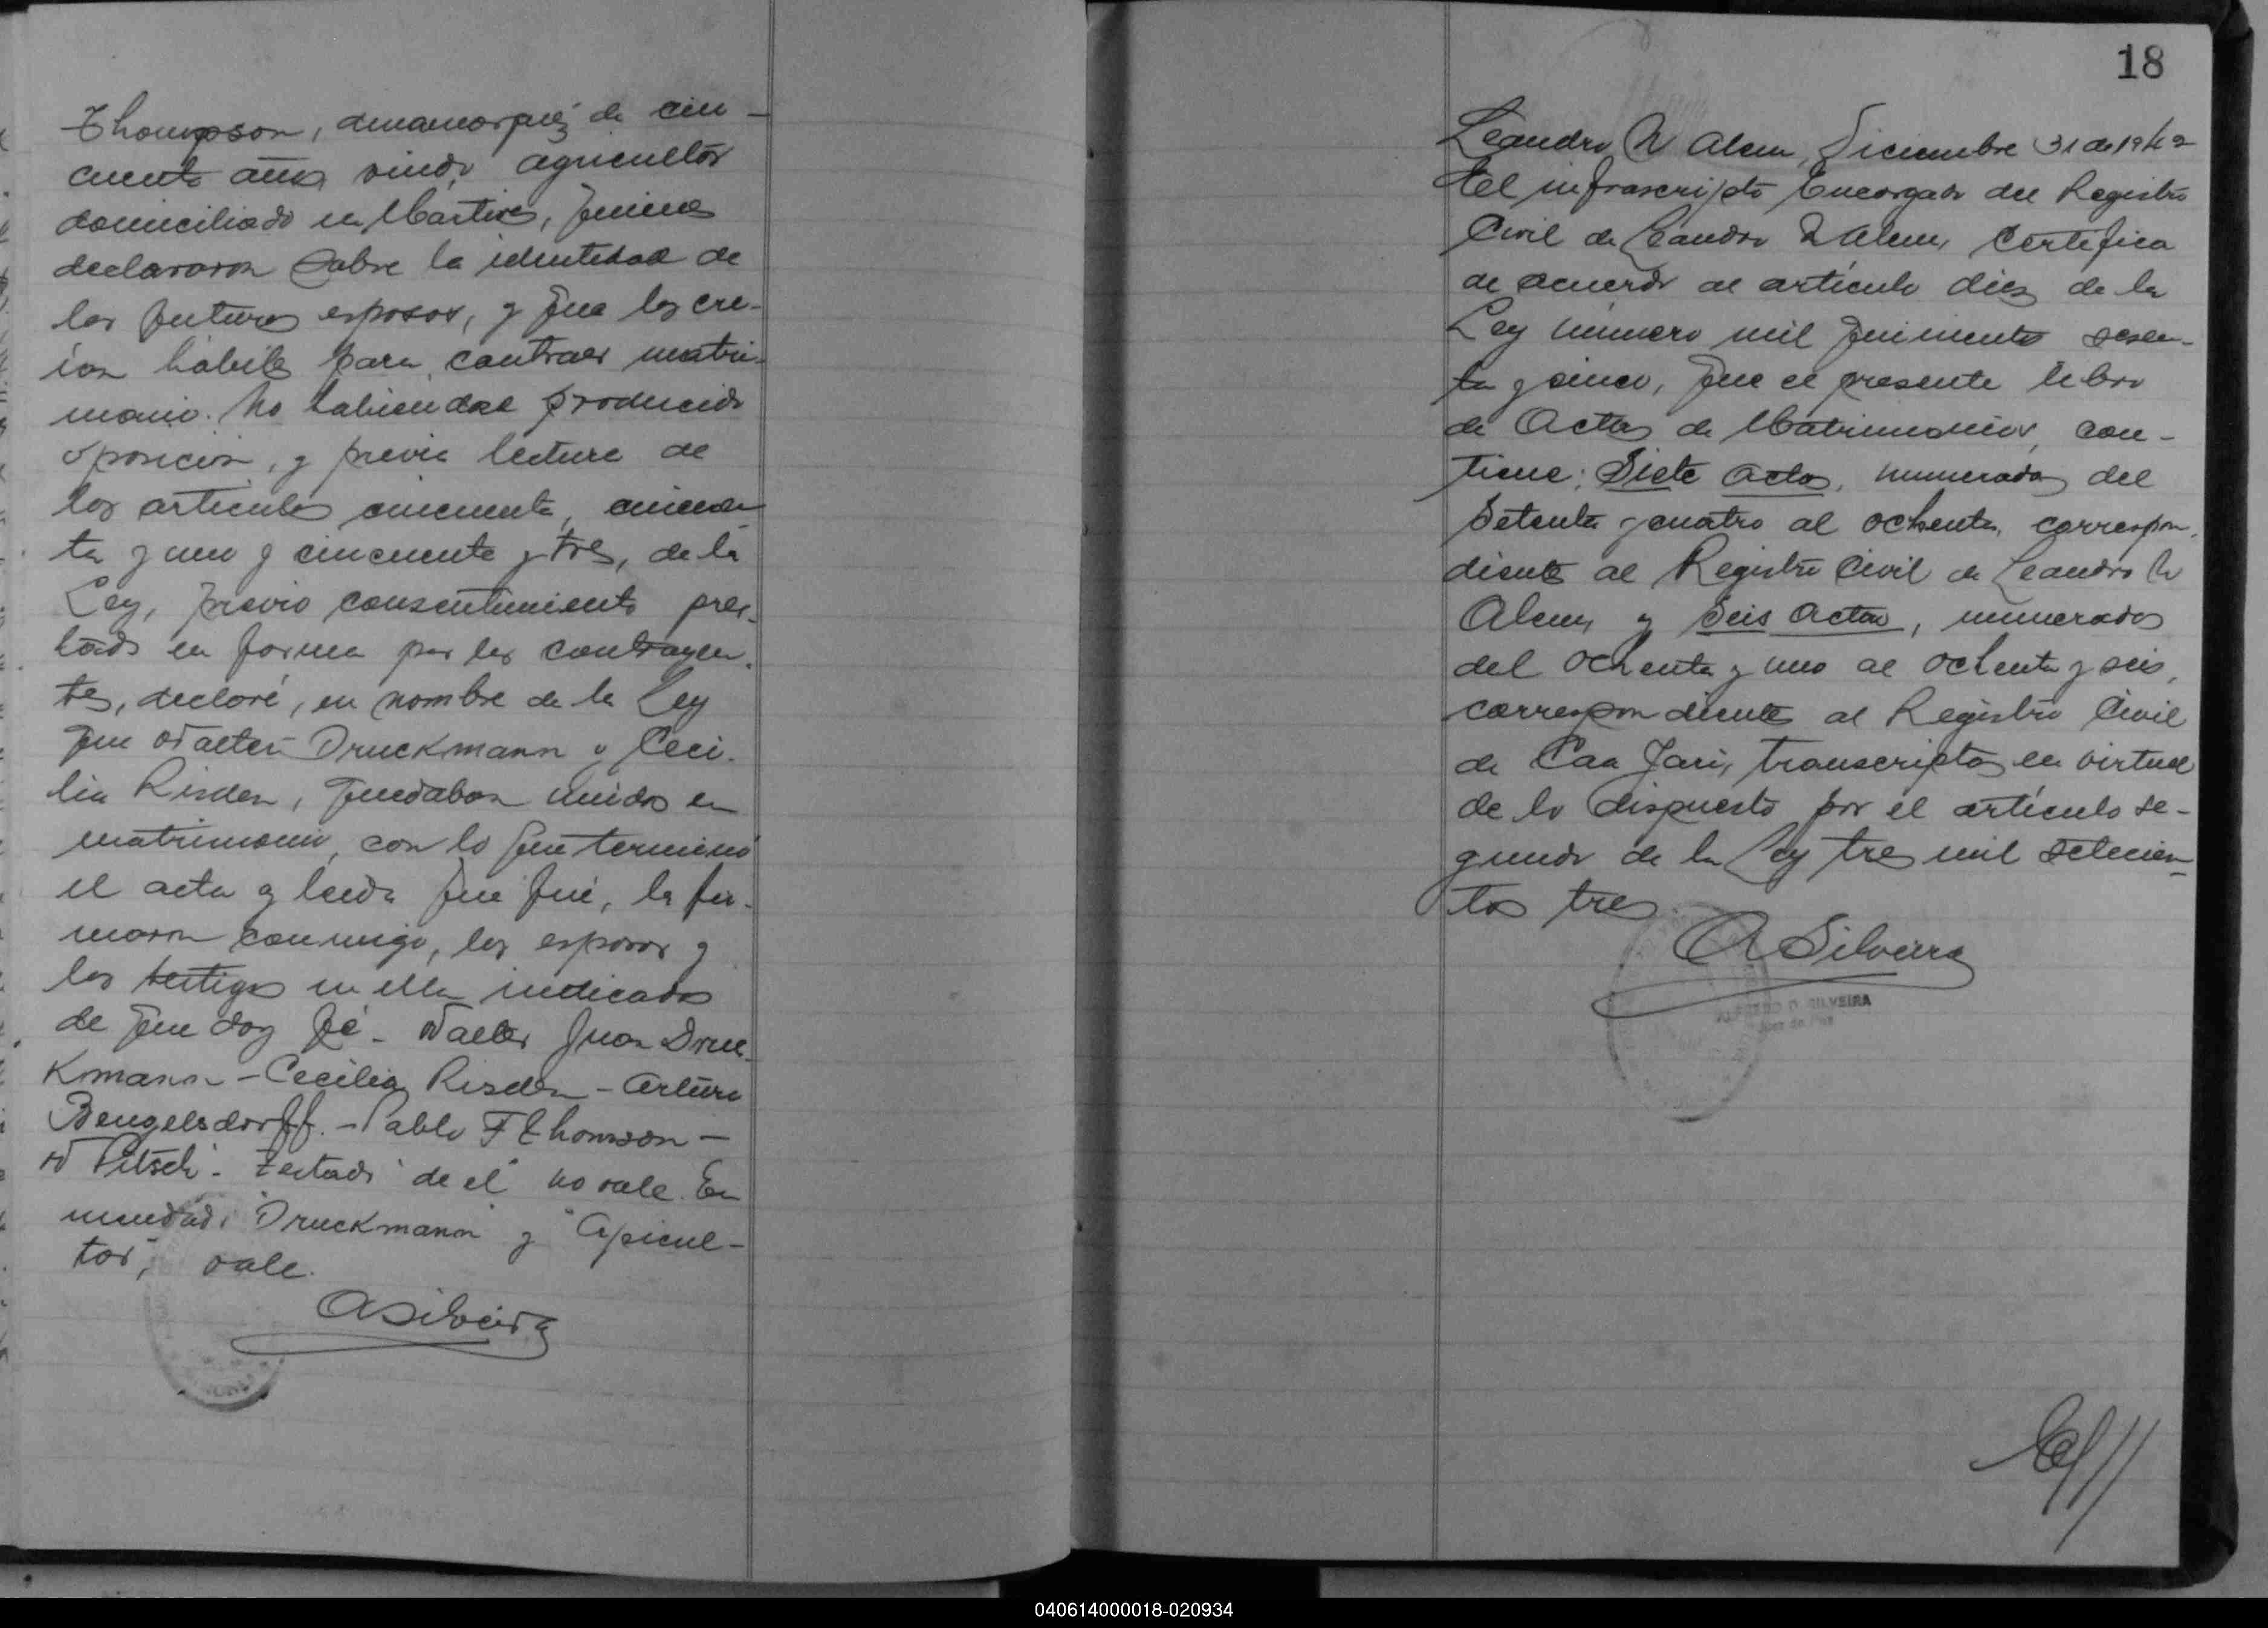 Thompson, dinamarqués de cin-
cuenta años viudo, agricultor
domiciliado en Mártires, quienes
declararon sobre la identidad de
los futuros esposos, y que los cre-
ían hábiles para contraer matri-
monio. No habiendose producido
oposición, y previa lectura de
los articulos cincuenta, cincuen
ta y uno y cincuenta y tres, de la
Ley, previo consentimiento pres-
tado en forma por los contrayen-
tes, declaré, en nombre de la Ley
que Walter Druckmann y Ceci-
lia Risden, quedaban unidos en
matrimonio, con lo que terminó
el acta y leida que fué, la fir-
maron conmigo, los esposos y
los testigos en ella indicados
de que doy fé - Walter Juan Druc-
kmann - Cecilia Risden - Arturo
Bengelsdorff. - Pablo F Thomson -
W Pitsch - Testado "de el" no vale. En
mendado "Druckmann" y "Apicul-
tor", vale.
ASilveira
18
Leandro N Alem, Diciembre 31 de 1942
El infrascripto Encargado del Registro
Civil de Leandro N Alem, Certifica
de acuerdo al artículo diez de la
Ley número mil quinientos sesen-
ta y cinco, que el presente libro
de Actas de Matrimonios, con-
tiene: Siete actas, numeradas del
Setenta y cuatro al ochenta, correspon-
dientes al Registro Civil de Leandro N
Alem, y Seis actas, numeradas
del ochenta y uno al ochenta y seis,
correspondientes al Registro Civil
de Caa Yarí, transcriptas en virtud
de lo dispuesto por el artículo se-
gundo de la Ley tres mil setecien-
tos tres
ASilveira
ALFREDO D. SILVEIRA
Juez de Paz
040614000018-020934